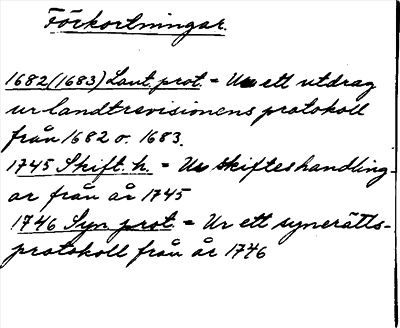 Förkortningar.
1682 (1683) Lant. prot. = Ur ett utdrag
ur landtrevisionens protokoll
från 1682 o. 1683.
1745 Skift. h. = Ur skifteshandling-
ar från år 1745
1746 Syn. prot. = Ur ett synerätts-
protokoll från år 1746